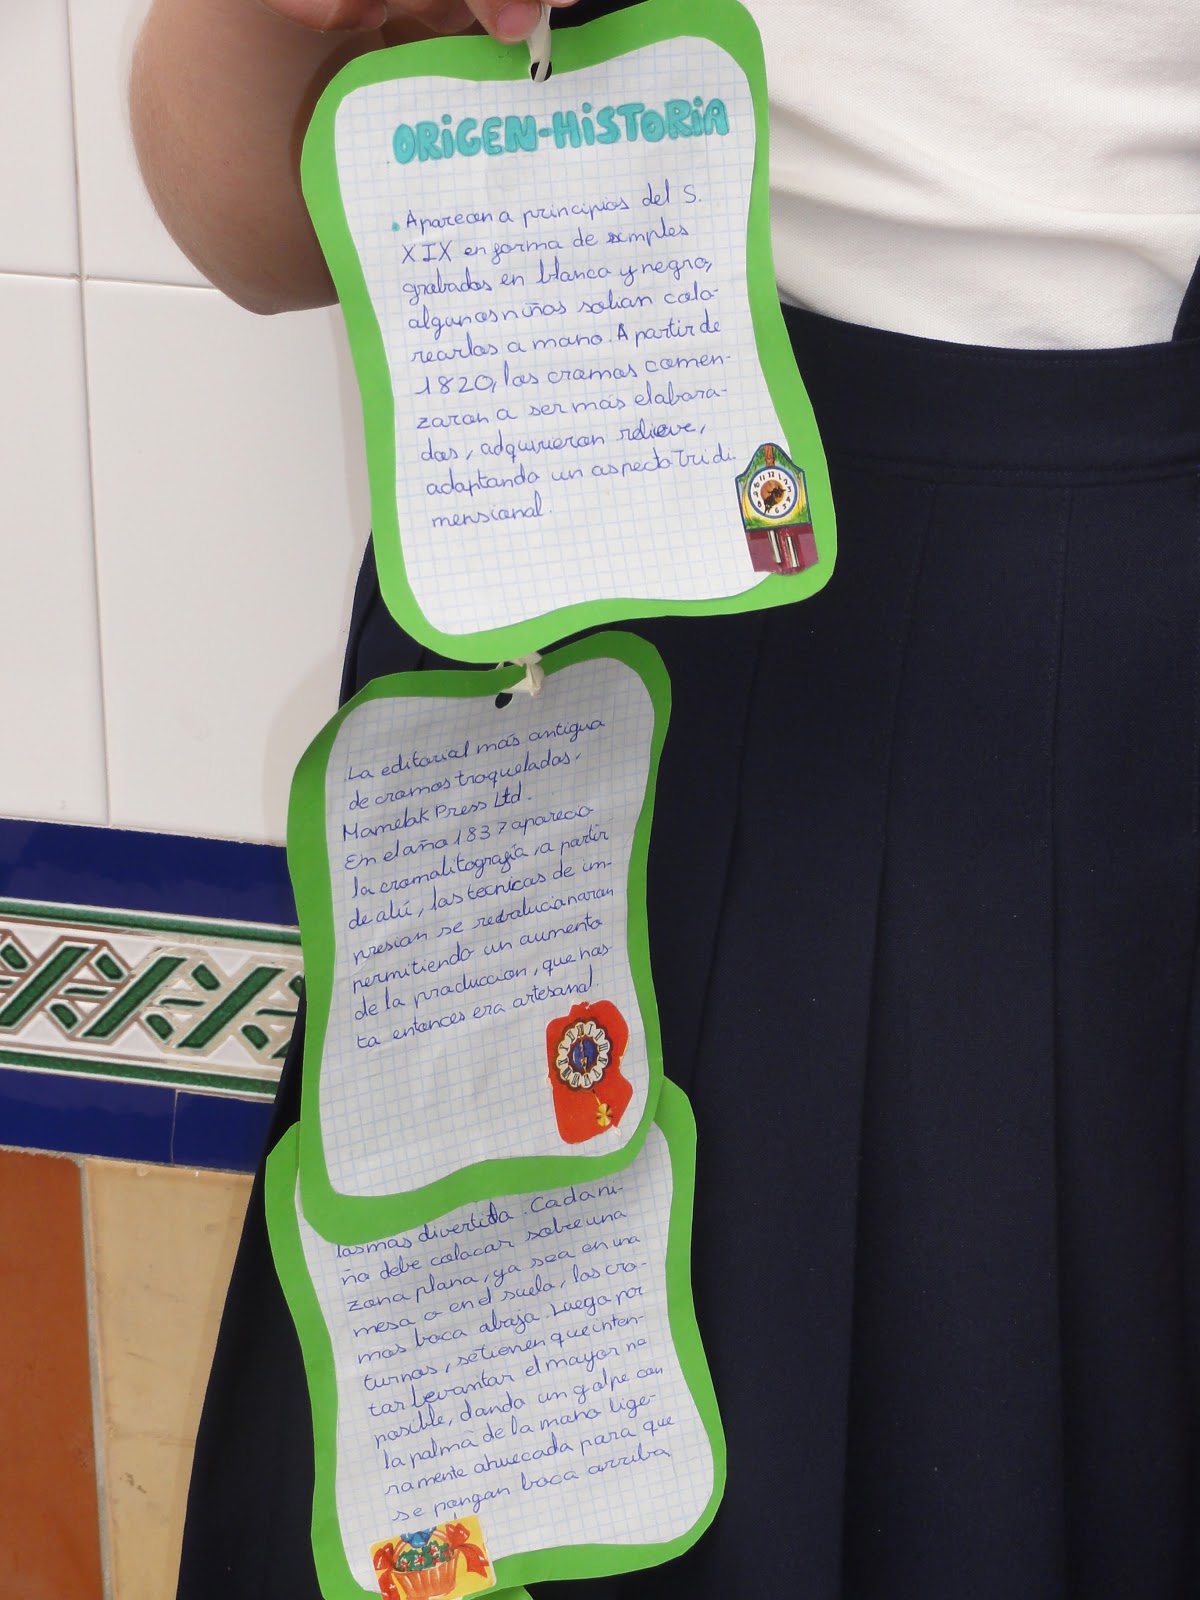 ORiGEN-HiSTORiA
• Aparecen a principios del S.
XIX en forma de simples
grabados en blanco y negro,
algunos niños solian colo-
rearlos a mano. A partir de
1820, los cromos comen-
zaron a ser más elabora-
dos, adquirieron relieve,
adaptando un aspecto tridi-
mensional.
La editorial más antigua
de cromos troquelados,
Mamelok Press Ltd.
En el año 1837 aparecio
la cromolitografía, a partir
de ahí, las tecnicas de im-
presion se revolucionaron
permitiendo un aumento
de la produccion, que has-
ta entonces era artesanal.
las mas divertida. Cada ni-
ño debe colocar sobre una
zona plana, ya sea en una
mesa o en el suelo, los cro-
mos boca abajo. Luego por
turnos, se tienen que inten-
tar levantar el mayor nº
posible, dando un golpe con
la palma de la mano lige-
ramente ahuecada para que
se pongan boca arriba